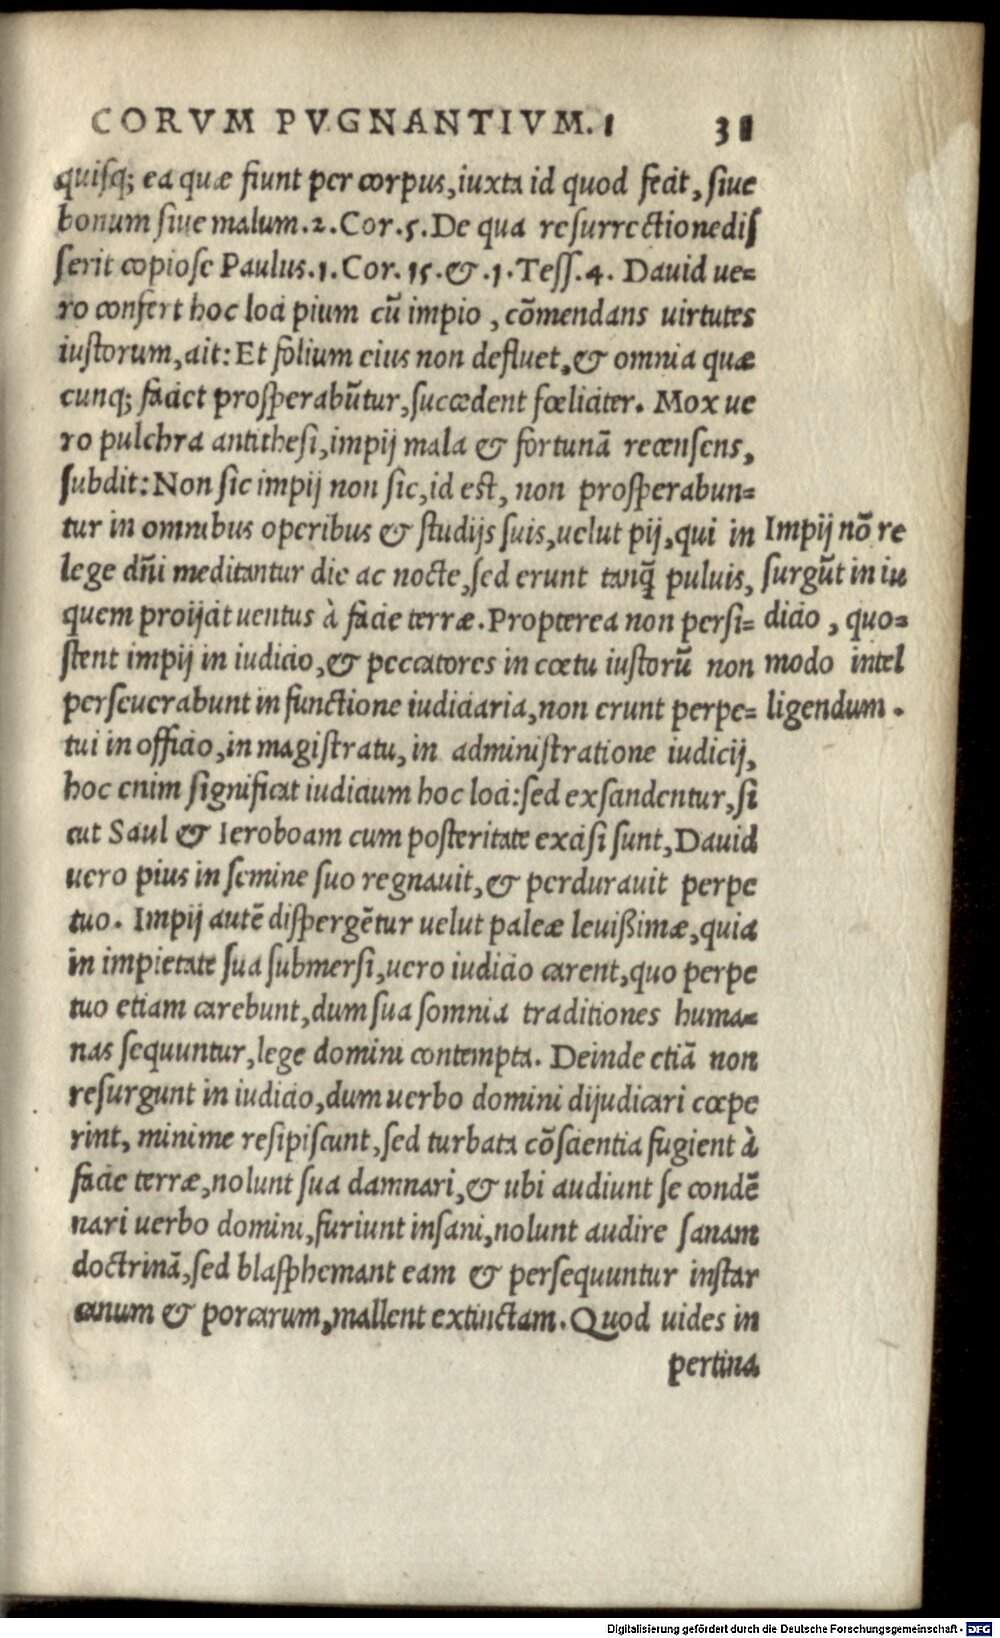 CORVM PVGNANTIVM. 31
quisq; ea quæ fiunt per corpus, iuxta id quod fecit, siue
bonum siue malum. 2. Cor. 5. De qua resurrectione dis
serit copiose Paulus. 1. Cor. 15. & . 1. Tess. 4. Dauid ue=
ro confert hoc loci pium cū impio, cōmendans uirtutes
iustorum, ait: Et folium eius non defluet, & omnia quæ
cunq; faciet prosperabūtur, succedent fœliciter. Mox ue
ro pulchra antithesi, impij mala & fortunā recensens,
subdit: Non sic impij non sic, id est, non prosperabun=
tur in omnibus operibus & studijs suis, uelut pij, qui in
lege dn̄i meditantur die ac nocte, sed erunt tanq̄ puluis,
quem proijcit uentus à facie terræ. Propterea non persi=
stent impij in iudicio, & peccatores in cœtu iustorū non
perseuerabunt in functione iudiciaria, non erunt perpe=
tui in officio, in magistratu, in administratione iudicij,
hoc enim significat iudicium hoc loci: sed exscindentur, si
cut Saul & Ieroboam cum posteritate excisi sunt, Dauid
uero pius in semine suo regnauit, & perdurauit perpe
tuo. Impij autē dispergētur uelut paleæ leuißimæ, quia
in impietate sua submersi, uero iudicio carent, quo perpe
tuo etiam carebunt, dum sua somnia traditiones huma=
nas sequuntur, lege domini contempta. Deinde etiā non
resurgunt in iudicio, dum uerbo domini dijudicari cœpe
rint, minime resipiscunt, sed turbata cōscientia fugient à
facie terræ, nolunt sua damnari, & ubi audiunt se condē
nari uerbo domini, furiunt insani, nolunt audire sanam
doctrinā, sed blasphemant eam & persequuntur instar
canum & porcarum, mallent extinctam. Quod uides in
pertina
Impij nō re
surgūt in iu
dicio, quo=
modo intel
ligendum.
Digitalisierung gefördert durch die Deutsche Forschungsgemeinschaft - DFG